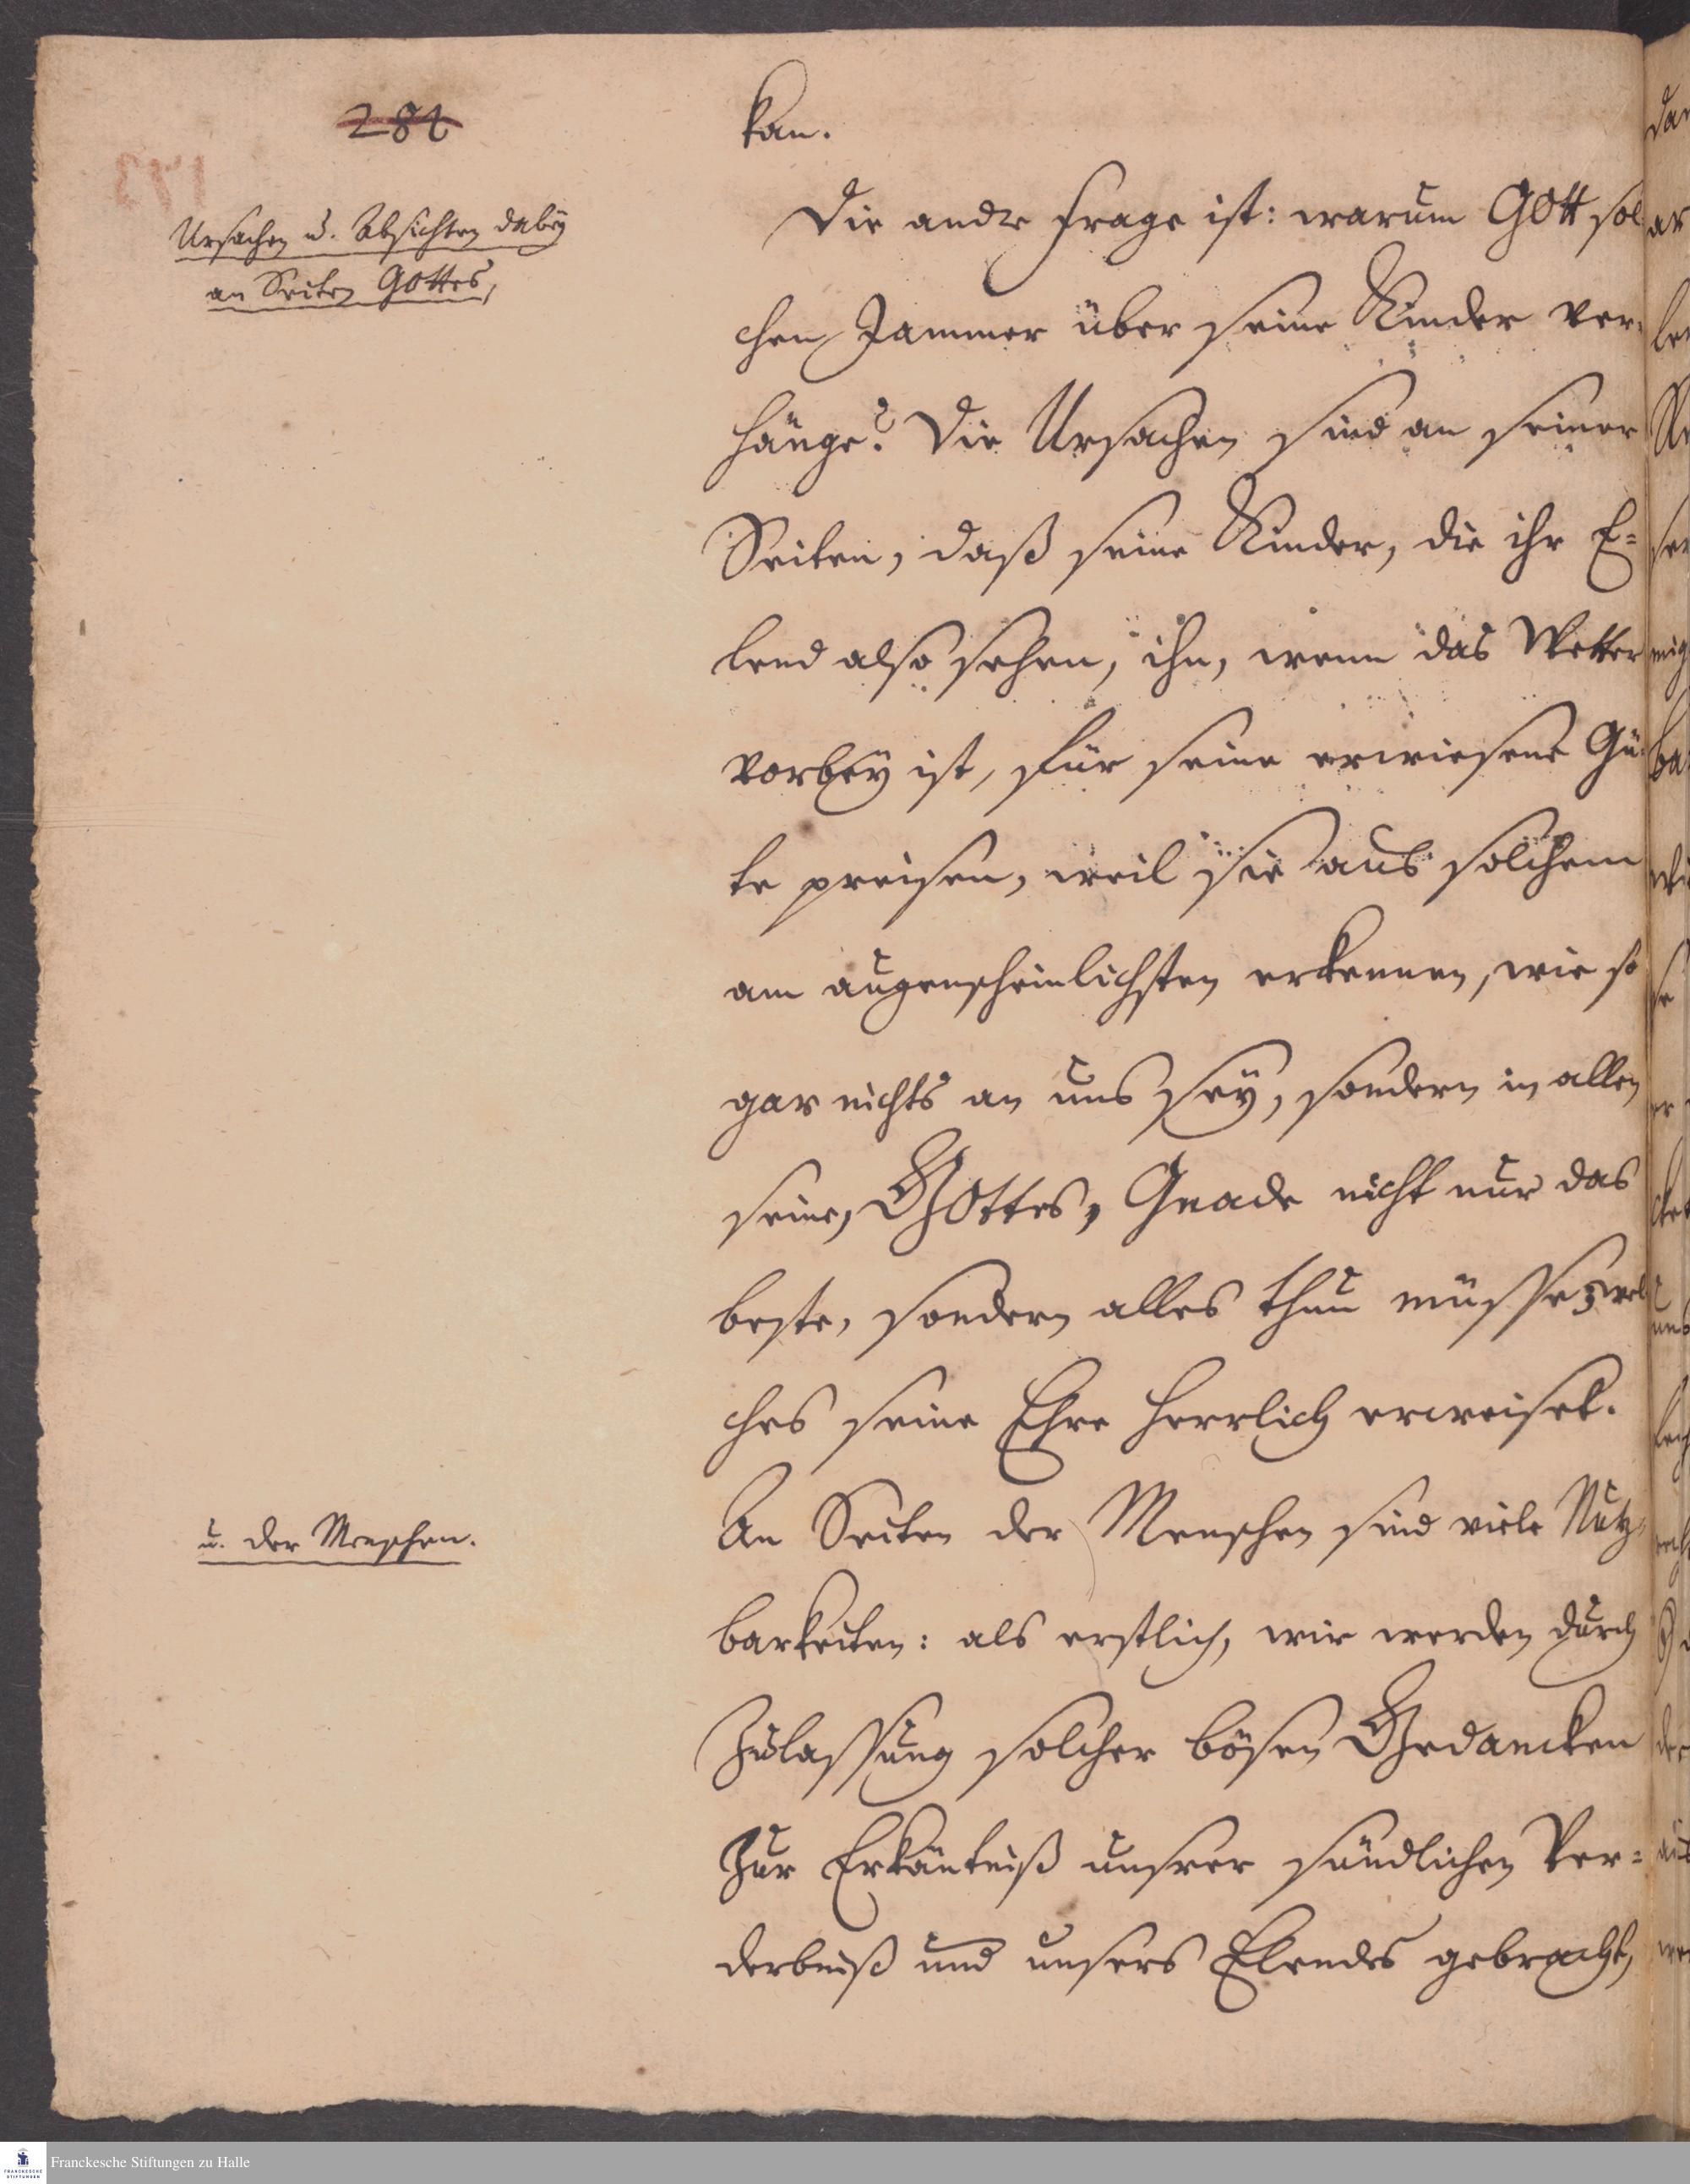 282
kan.
Ursachen u. Absichten dabey
an Seiten Gottes,
Die andre Frage ist: warum GOtt sol-
chen Jammer über seine Kinder ver-
hänge? Die Ursachen sind an seiner
Seiten, daß seine Kinder, die ihr E-
lend also sehen, ihn, wenn das Wetter
vorbey ist, für seine erwiesene Gü-
te preisen, weil sie aus solchem
am augenscheinlichsten erkennen, wie so
gar nichts an uns sey, sondern in allen
seine, GOttes, Gnade nicht nur das
beste, sondern alles thun müsse, wel-
ches seine Ehre herrlich erweiset.
u. der Menschen.
An Seiten der Menschen sind viele Nutz-
barkeiten: als erstlich, wir werden durch
Zulassung solcher bösen Gedancken
zur Erkäntniß unsrer sündlichen Ver-
derbniß und unsers Elendes gebracht,
Franckesche Stiftungen zu Halle